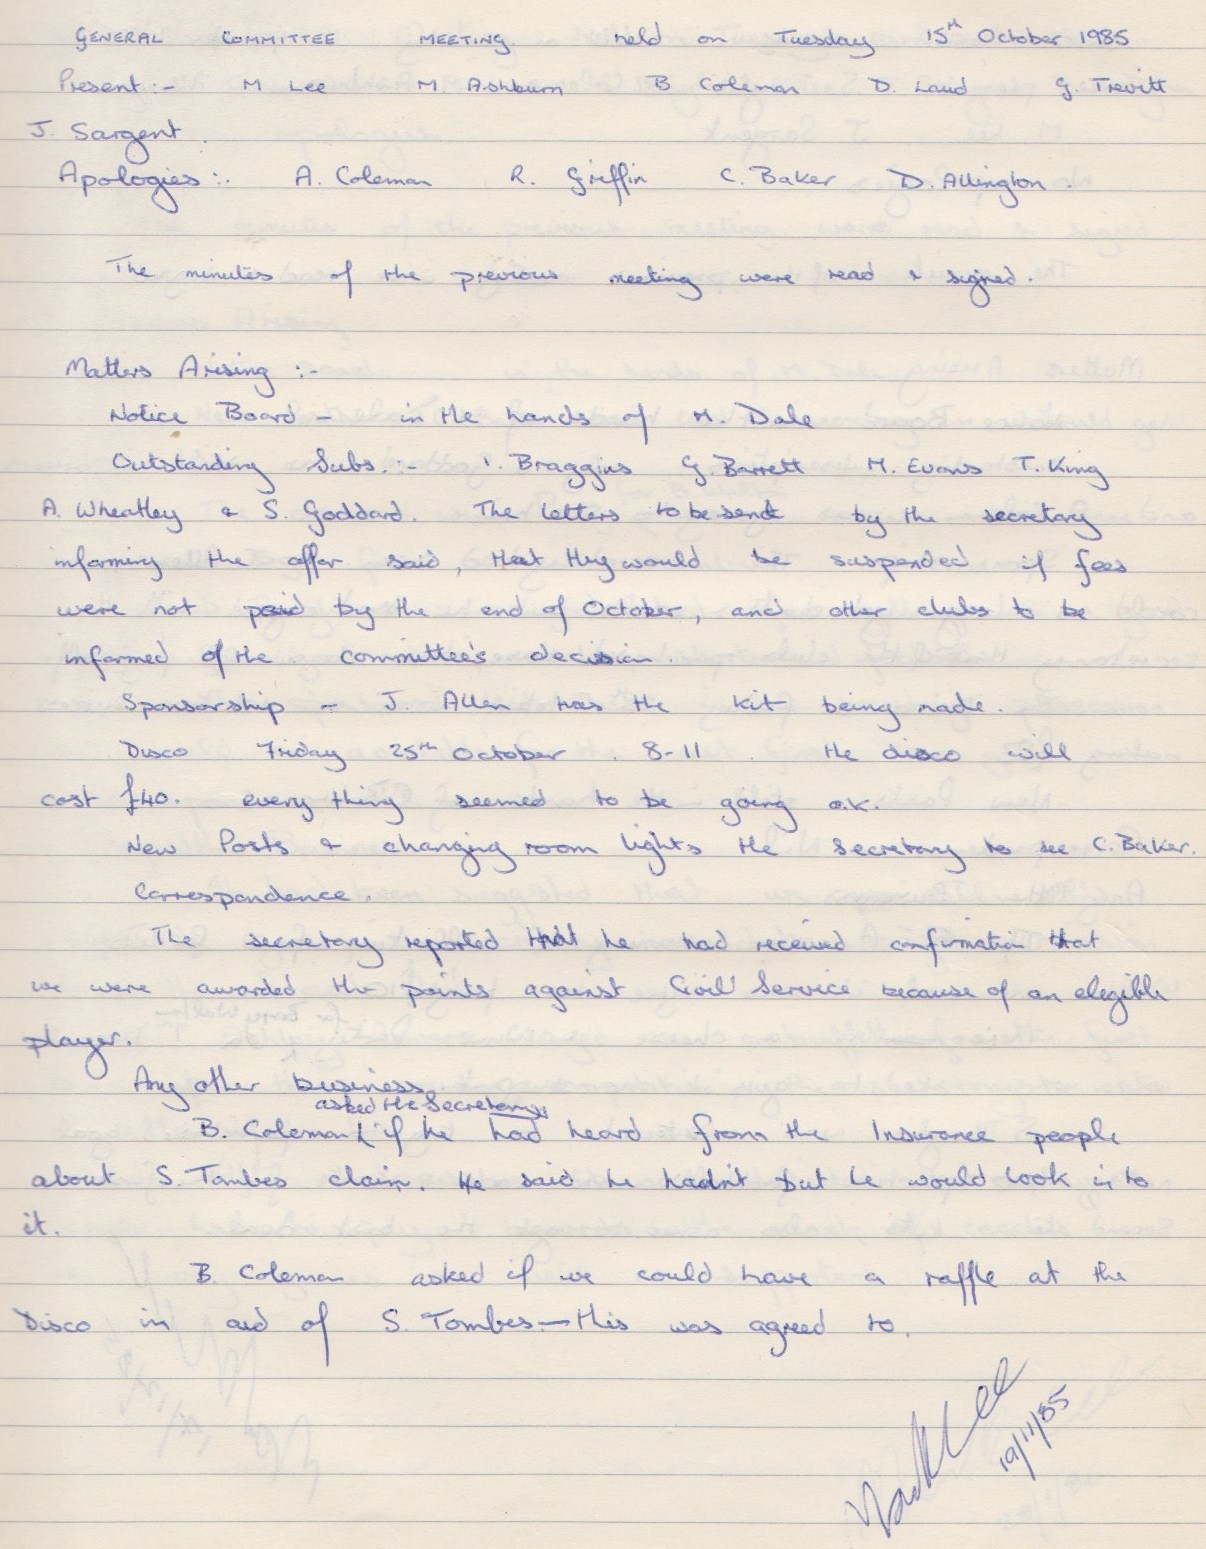 GENERAL COMMITTEE MEETING. held on Tuesday 15th October 1985
Present :- M Lee M Ashburn B Coleman D. Laud G. Trevitt
J. Sargent.
Apologies :. A. Coleman R. Griffin C. Baker D. Allington.
The minutes of the previous meeting were read & signed.
Matters Arising :-
Notice Board - in the hands of M. Dale
Outstanding Subs. :- Braggins G. Barrett M. Evans T. King
A. Wheatley & S. Goddard. The letters to be send by the secretary
informing the said, that they would be suspended if fees
were not paid by the end of October, and other clubs to be
informed of the committee's decision.
Sponsorship - J. Allen has the kit being made.
Disco Friday 25th October. 8-11. the disco will
cost £40. every thing seemed to be going o.k.
New Posts & changing room lights the secretary to see C. Baker.
Correspondence.
The secretary reported that he had received confirmation that
we were awarded the points against Civil Service because of an elegible
player.
Any other business.
asked the Secretary
B. Coleman if he had heard from the Insurance people
about S. Tombes claim. He said he hadn't but he would look in to
it.
B. Coleman asked if we could have a raffle at the
Disco in aid of S. Tombes - this was agreed to.
Mark Lee
19/11/85